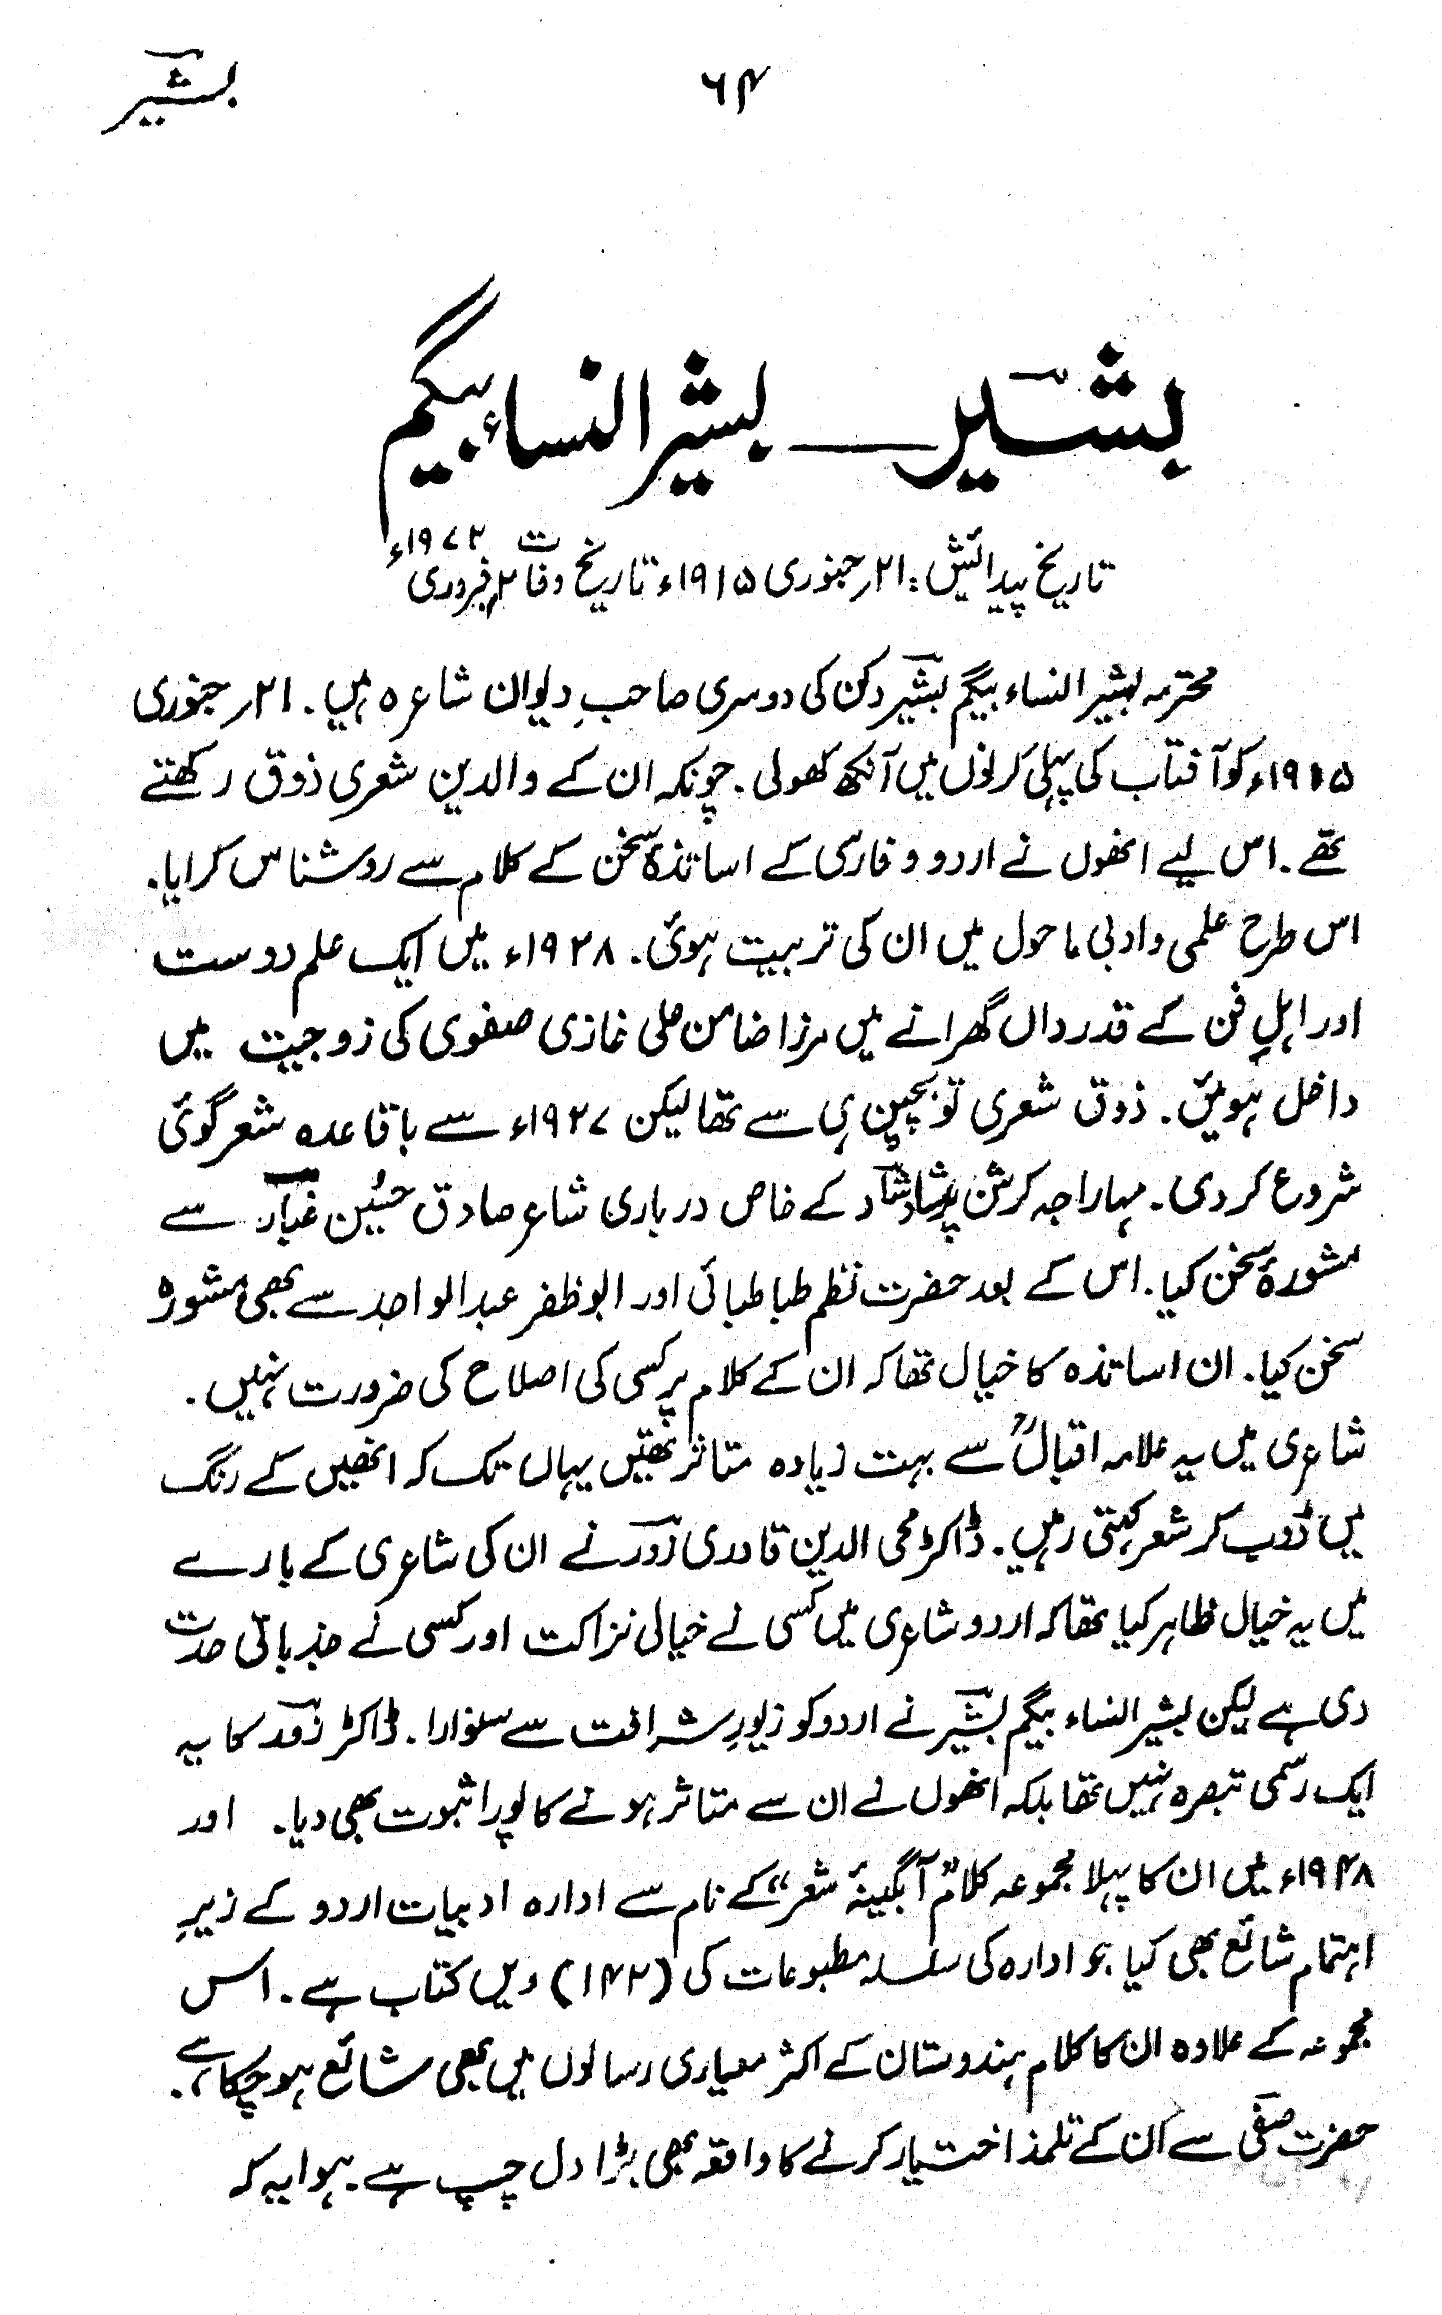 بشیرؔ
۶۴
بشیرؔ ــــ بشیر النساء بیگم
تاریخ پیدائش: ۲۱؍ جنوری ۱۹۱۵ء تاریخ وفات ۲؍ فروری ۱۹۷۲ء
محترمہ بشیر النساء بیگم بشیرؔ دکن کی دوسری صاحبِ دیوان شاعرہ ہیں۔ ۲۱؍ جنوری
۱۹۱۵ء کو آفتاب کی پہلی کرنوں میں آنکھ کھولی۔ چونکہ ان کے والدین شعری ذوق رکھتے
تھے۔ اس لیے انھوں نے اردو و فارسی کے اساتذۂ سخن کے کلام سے روشناس کرایا۔
اس طرح علمی و ادبی ماحول میں ان کی تربیت ہوئی۔ ۱۹۲۸ء میں ایک علم دوست
اور اہلِ فن کے قدرداں گھرانے میں مرزا ضامن علی غازی صفوی کی زوجیت میں
داخل ہوئیں۔ ذوق شعری تو بچپن ہی سے تھا لیکن ۱۹۲۷ء سے باقاعدہ شعر گوئی
شروع کردی۔ مہاراجہ کرشن پرشاد شادؔ کے خاص درباری شاعر صادق حسین غبارؔ سے
مشورۂ سخن کیا۔ اس کے بعد حضرت نظم طباطبائی اور ابو ظفر عبدالواحد سے بھی مشورہ
سخن کیا۔ ان اساتذہ کا خیال تھا کہ ان کے کلام پر کسی کی اصلاح کی ضرورت نہیں۔
شاعری میں یہ علامہ اقبالؒ سے بہت زیادہ متاثر تھیں یہاں تک کہ انھیں کے رنگ
میں ڈوب کر شعر کہتی رہیں۔ ڈاکٹر محی الدین قادری زورؔ نے ان کی شاعری کے بارے
میں یہ خیال ظاہر کیا تھا کہ اردو شاعری میں کسی نے خیالی نزاکت اور کسی نے جذباتی حدت
دی ہے لیکن بشیر النساء بیگم بشیرؔ نے اردو کو زیورِ شرافت سے سنوارا۔ ڈاکٹر زورؔ کا یہ
ایک رسمی تبصرہ نہیں تھا بلکہ انھوں نے ان سے متاثر ہونے کا پورا ثبوت بھی دیا۔ اور
۱۹۴۸ء میں ان کا پہلا مجموعہ کلام "آبگینۂ شعر" کے نام سے ادارہ ادبیات اردو کے زیرِ
اہتمام شائع بھی کیا جو ادارہ کی سلسلہ مطبوعات کی (۱۴۲) ویں کتاب ہے۔ اس
مجموعہ کے علاوہ ان کا کلام ہندوستان کے اکثر معیاری رسالوں میں بھی شائع ہوچکا ہے۔
حضرت صفیؔ سے ان کے تلمذ اختیار کرنے کا واقعہ بھی بڑا دل چسپ ہے۔ ہوا یہ کہ